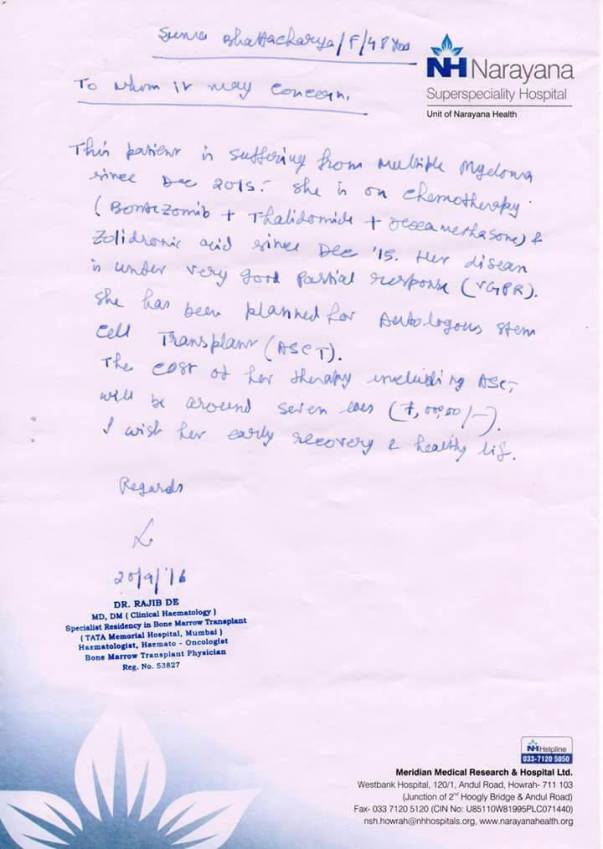 Bhattacharya/F/48 Yrs
NH Narayana
Superspeciality Hospital
Unit of Narayana Health
To whom it may concern,
This patient is suffering from Multiple Myeloma
since Dec 2015. She is on chemotherapy
(Bortezomib + Thalidomide + Dexamethasone) &
Zolidronic acid since Dec '15. Her disease
is under very good partial response (VGPR).
She has been planned for Autologous Stem
Cell Transplant (ASCT).
The cost of her therapy including ASCT
will be around seven lacs (7,00,000/-).
I wish her early recovery & healthy life.
Regards
20/9/'16
DR. RAJIB DE
MD, DM ( Clinical Haematology )
Specialist Residency in Bone Marrow Transplant
( TATA Memorial Hospital, Mumbai )
Haematologist, Haemato - Oncologist
Bone Marrow Transplant Physician
Reg. No. 53827
NH Helpline
033-7120 5050
Meridian Medical Research & Hospital Ltd.
Westbank Hospital, 120/1, Andul Road, Howrah- 711 103
(Junction of 2nd Hoogly Bridge & Andul Road)
Fax- 033 7120 5120 (CIN No: U85110W81995PLC071440)
nsh.howrah@nhhospitals.org, www.narayanahealth.org